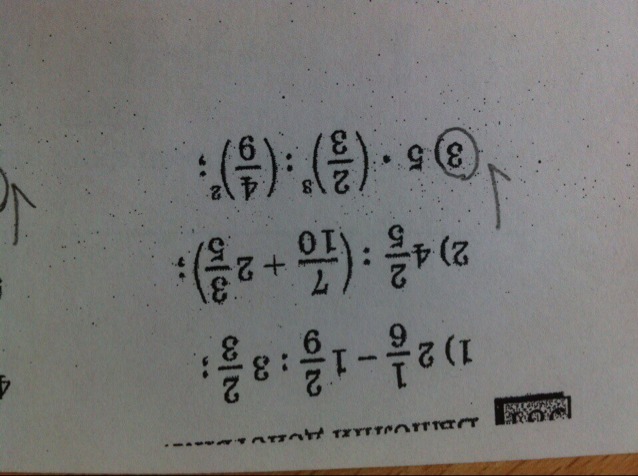 1) 2 1/6 − 1 2/9 : 3 2/3;
2) 4 2/5 : (7/10 + 2 3/5);
3) 5 · (2/3)³ : (4/9)²;